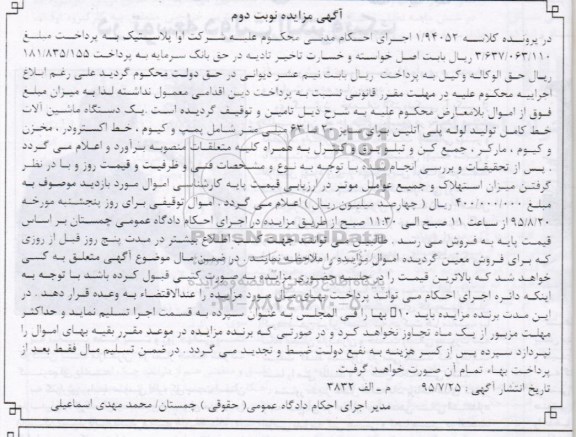 آگهی مزایده نوبت دوم
در پرونده کلاسه ۱/۹۴۰۵۲ اجرای احکام مدنی محکوم علیه شرکت آوا پلاستیک به پرداخت مبلغ
۳/۶۳۷/۰۶۳/۱۱۰ ریال بابت اصل خواسته و خسارت تاخیر تادیه در حق بانک سرمایه به پرداخت ۱۸۱/۸۳۵/۱۵۵
ریال حق الوکاله وکیل به پرداخت ریال بابت نیم عشر دیوانی در حق دولت محکوم گردید علی رغم ابلاغ
اجراییه محکوم علیه در مهلت مقرر قانونی نسبت به پرداخت دین اقدامی معمول نداشته لذا به میزان مبلغ
فوق از اموال بلامعارض محکوم علیه به شرح ذیل تامین و توقیف گردیده است .یک دستگاه ماشین آلات
خط کامل تولید لوله پلی اتلین برای سایز میلی متر شامل پمپ و کیوم ، خط اکسترودر ، مخزن
و کیوم ، مارکر ، جمع کن و کنترل به همراه کلیه متعلقات منصوبه برآورد و اعلام می گردد
. پس از تحقیقات و بررسی انجام شده با توجه به نوع و مشخصات فنی و ظرفیت و قیمت روز و با در نظر
گرفتن میزان استهلاک و جمیع عوامل موثر در ارزیابی قیمت پایه کارشناسی اموال مورد بازدید موصوف به
مبلغ ۴۰۰/۰۰۰/۰۰۰ ریال ( چهارصد میلیون ریال ) اعلام می گردد . اموال توقیفی برای روز پنجشنبه مورخه
۹۵/۸/۲۰ از ساعت ۱۱ صبح الی ۱۱:۳۰ صبح از طریق مزایده در اجرای احکام دادگاه عمومی چمستان بر اساس
قیمت پایه به فروش می رسد . طالبین می توانند جهت کسب اطلاع بیشتر در مدت پنج روز قبل از روزی
که برای فروش معین گردیده اموال مزایده را ملاحظه نمایند . در ضمن مال موضوع آگهی متعلق به کسی
خواهد شد که بالاترین قیمت را در جلسه حضوری مزایده به صورت کتبی قبول کرده باشد با توجه به
اینکه دائره اجرای احکام می تواند پرداخت بهای مال مورد مزایده را عندالاقتضاء به وعده قرار دهد . در
این مدت برنده مزایده باید ۱۰٪ بها را فی المجلس به عنوان سپرده به قسمت اجرا تسلیم نماید و حداکثر
مهلت مزبور از یک ماه تجاوز نخواهد کرد و در صورتی که برنده مزایده در موعد مقرر بقیه بهای اموال را
نپردازد سپرده پس از کسر هزینه به نفع دولت ضبط و تجدید می گردد . در ضمن تسلیم مال فقط بعد از
پرداخت بهاء تمام آن صورت خواهد گرفت.
تاریخ انتشار آگهی : ۹۵/۷/۲۵ م - الف ۲۸۳۲
مدیر اجرای احکام دادگاه عمومی( حقوقی ) چمستان/ محمد مهدی اسماعیلی